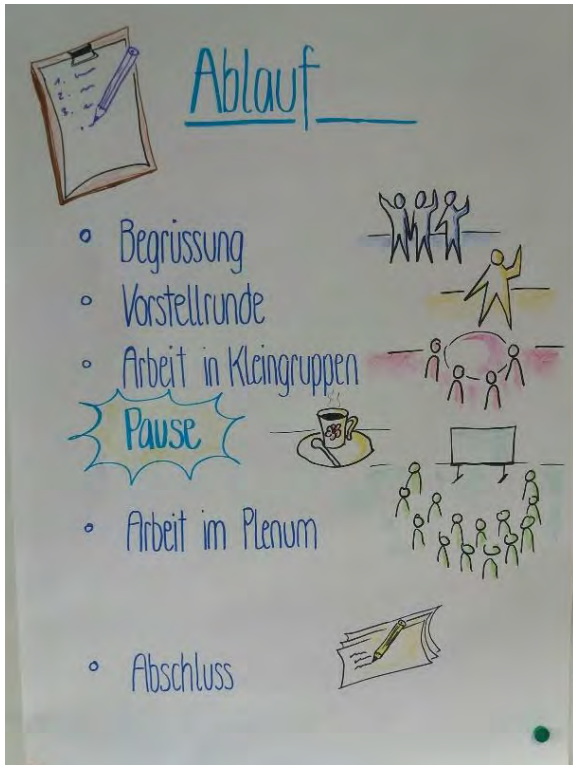 Ablauf
Begrüssung
Vorstellrunde
Arbeit in Kleingruppen
Pause
Arbeit im Plenum
Abschluss